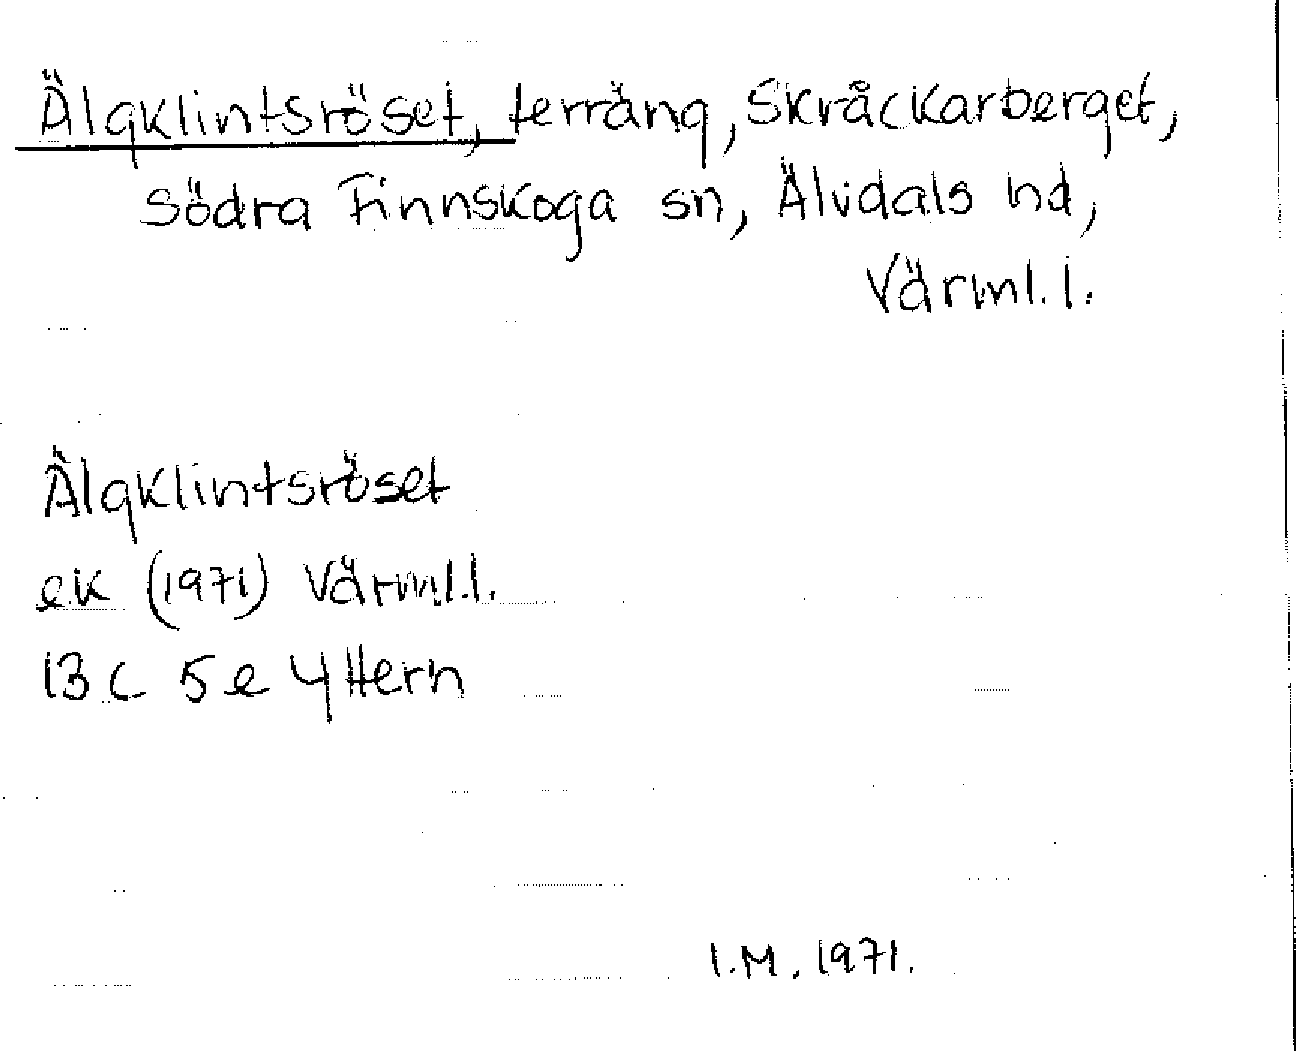 Älgklintsröset, terräng, Skråckarberget,
Södra Finnskoga sn, Älvdals hd,
Värml. l.
Älgklintsröset
ek (1971) Värml.l.
13 C 5 e Y Hern
I.M. 1971.